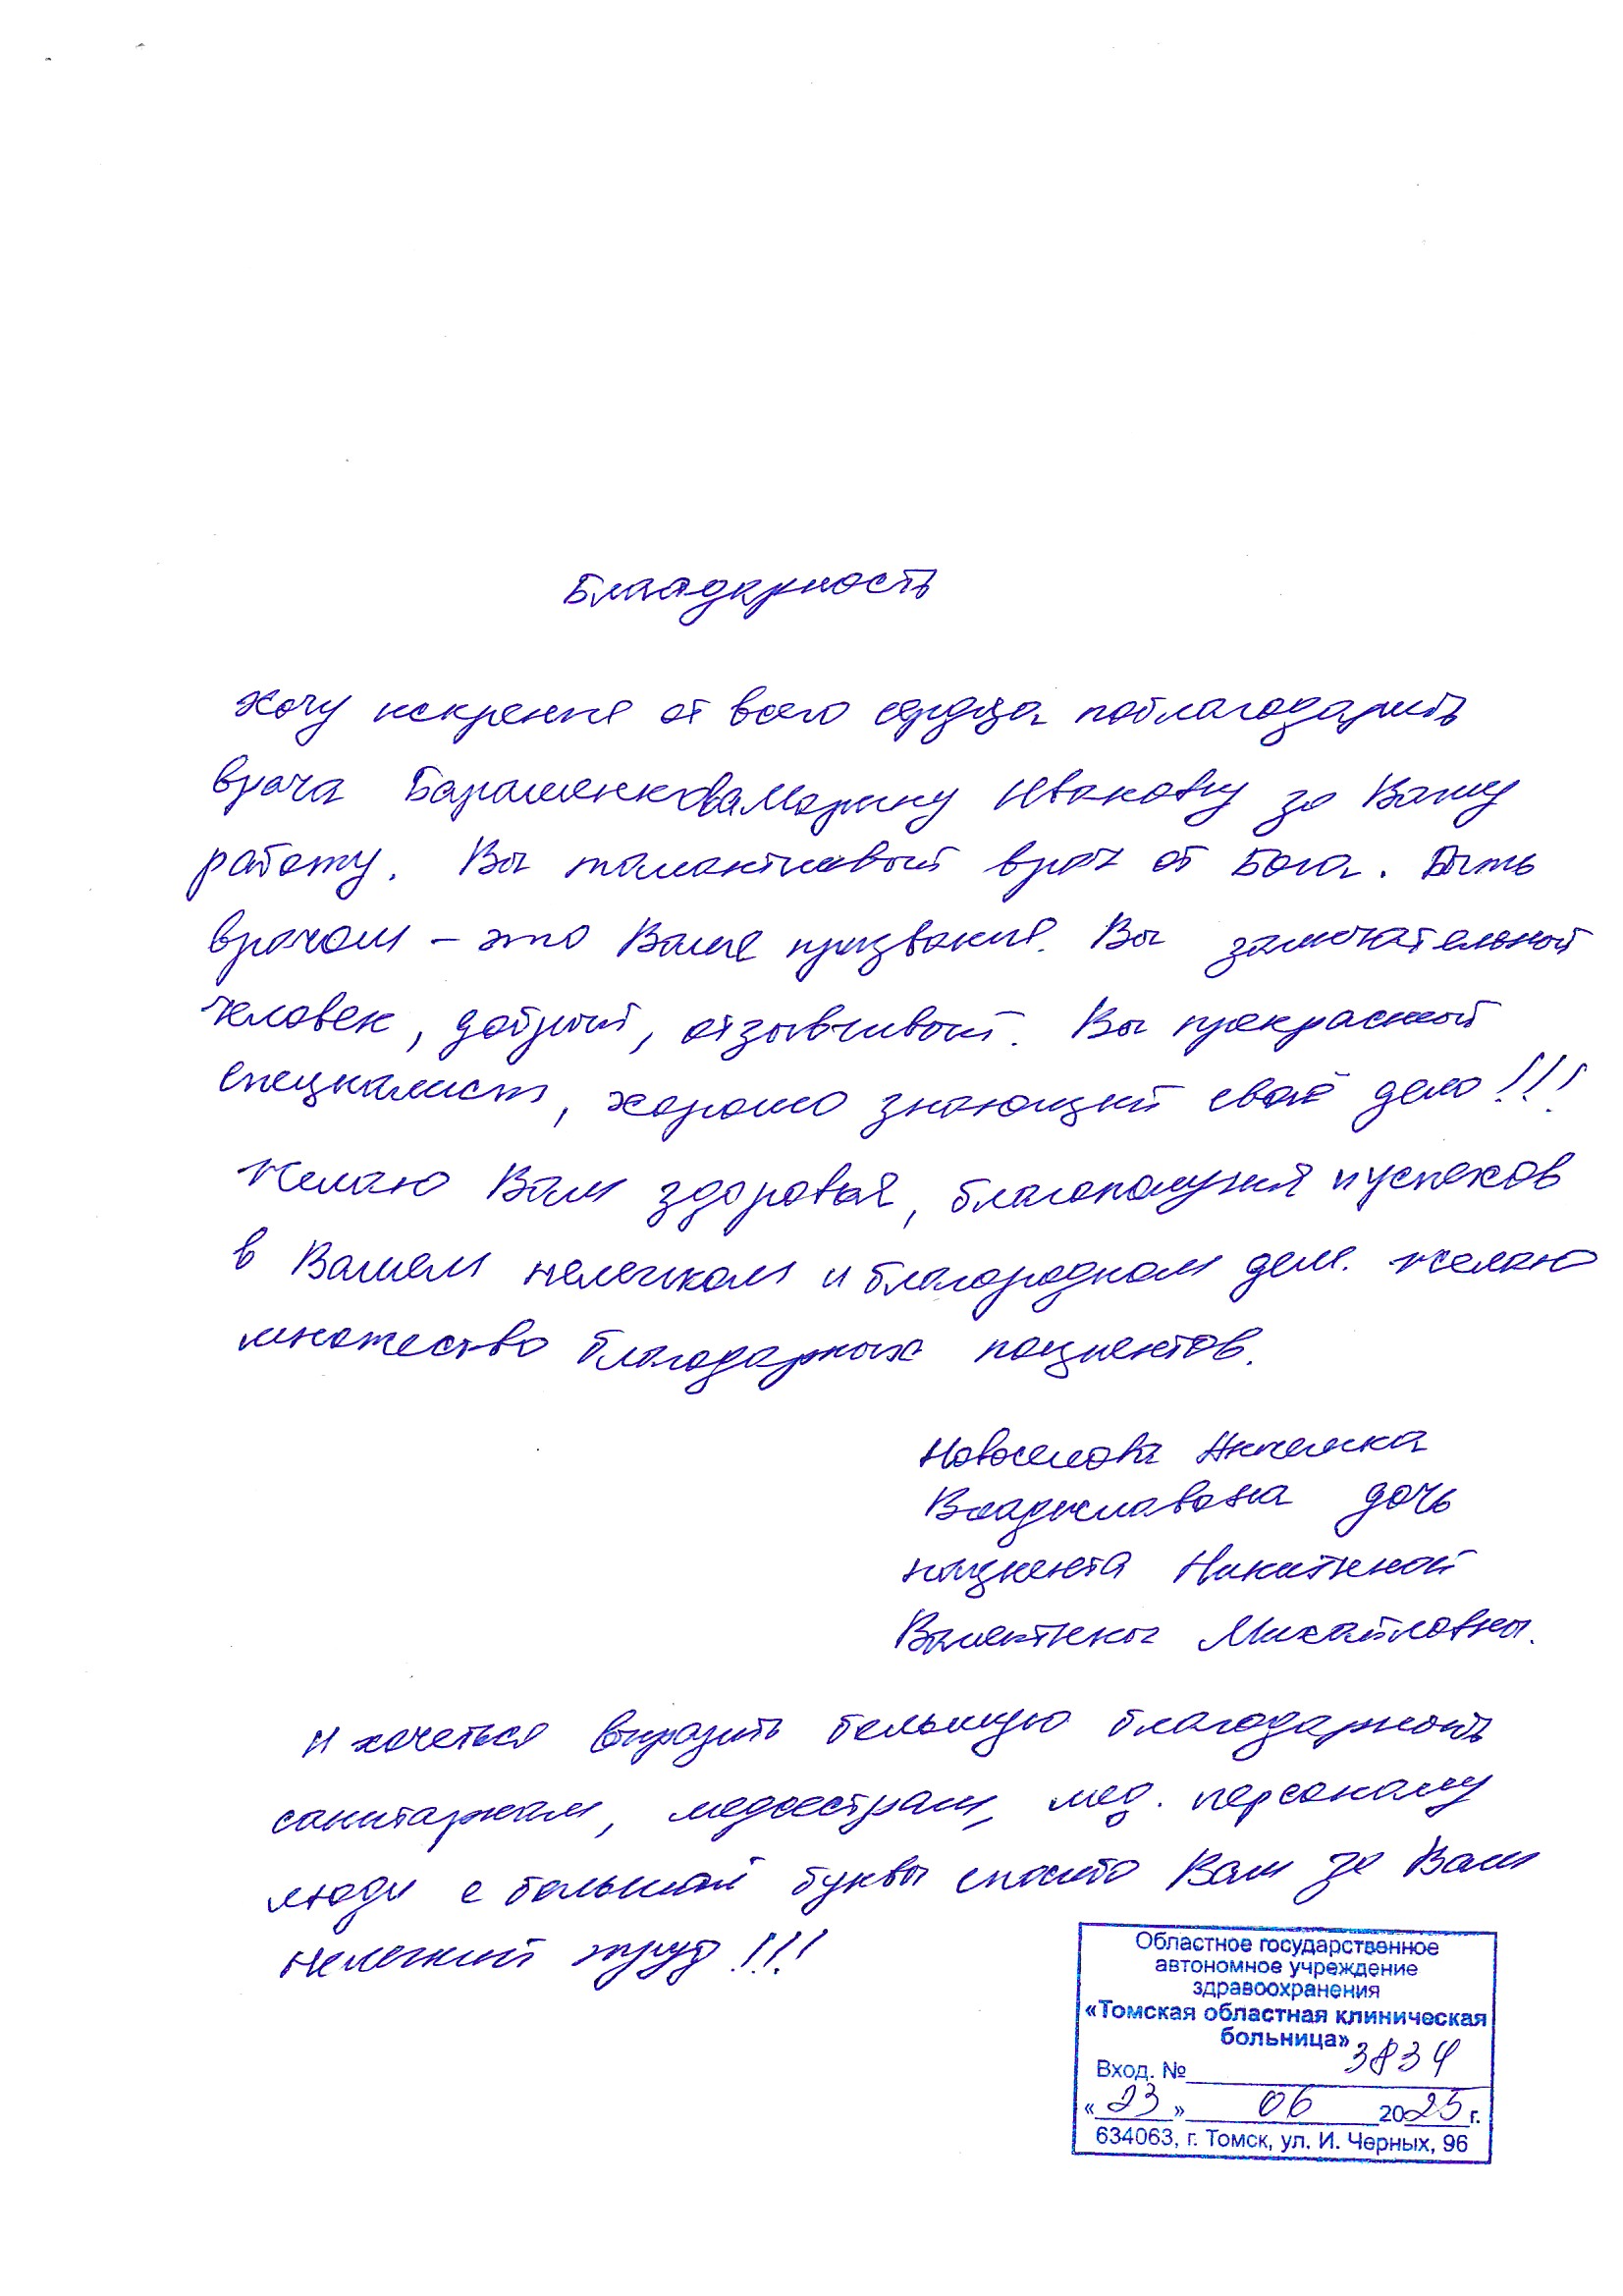 Благодарность
Хочу искренне от всего сердца поблагодарить
врача Марину Ивановну за Вашу
работу. Вы талантливый врач от Бога. Быть
врачом – это Ваше призвание. Вы замечательный
человек, добрый, отзывчивый. Вы прекрасный
специалист, хорошо знающий своё дело!!!
Желаю Вам здоровья, благополучия и успехов
в Вашем нелегком и благородном деле. Желаю
множество благодарных пациентов.
Новоселова Анжелика
Владиславовна дочь
пациента Никитиной
Валентины Михайловны.
И хочеться выразить большую благодарность
санитаркам, медсестрам, мед. персоналу
люди с большой буквы спасибо Вам за Ваш
нелегкий труд!!!
Областное государственное
автономное учреждение
здравоохранения
«Томская областная клиническая
больница»
Вход. № 3834
«23» 06 2025 г.
634063, г. Томск, ул. И. Черных, 96